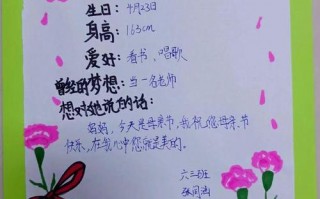 生日：4月23日
身高：163cm
爱好：看书、唱歌
曾经的梦想：当一名老师
想对她说的话：
妈妈，今天是母亲节，我祝您母亲节
快乐，在我心中您就是美的。
六三班